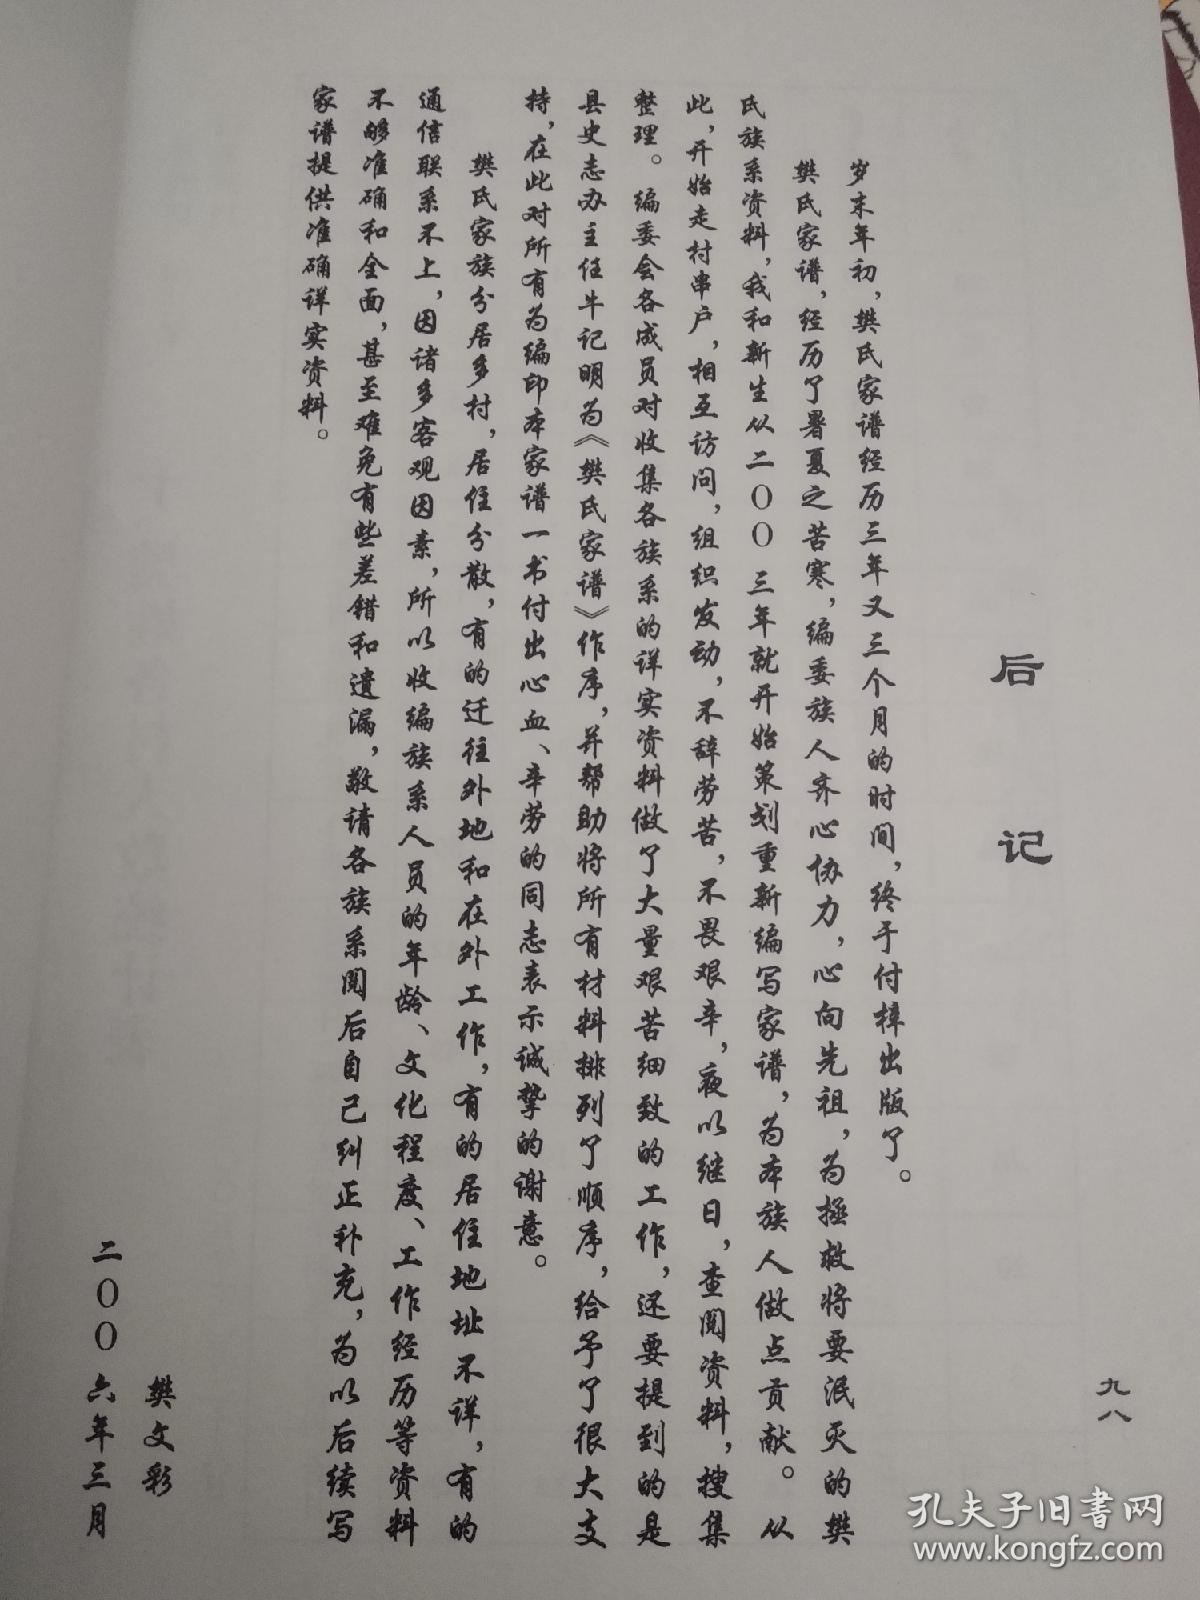 后记
岁末年初，樊氏家谱经历三年又三个月的时间，终于付梓出版了。
樊氏家谱，经历了暑夏之苦寒，编委族人齐心协力，心向先祖，为拯救将要泯灭的樊
氏族系资料，我和新生从二〇〇三年就开始策划重新编写家谱，为本族人做点贡献。从
此，开始走村串户，相互访问，组织发动，不辞劳苦，不畏艰辛，夜以继日，查阅资料，搜集
整理。编委会各成员对收集各族系的详实资料做了大量艰苦细致的工作，还要提到的是
县史志办主任牛记明为《樊氏家谱》作序，并帮助将所有材料排列了顺序，给予了很大支
持，在此对所有为编印本家谱一书付出心血、辛劳的同志表示诚挚的谢意。
樊氏家族分居多村，居住分散，有的迁往外地和在外工作，有的居住地址不详，有的
通信联系不上，因诸多客观因素，所以收编族系人员的年龄、文化程度、工作经历等资料
不够准确和全面，甚至难免有些差错和遗漏，敬请各族系阅后自己纠正补充，为以后续写
家谱提供准确详实资料。
樊文彩
二〇〇六年三月
九八
孔夫子旧书网
www.kongfz.com